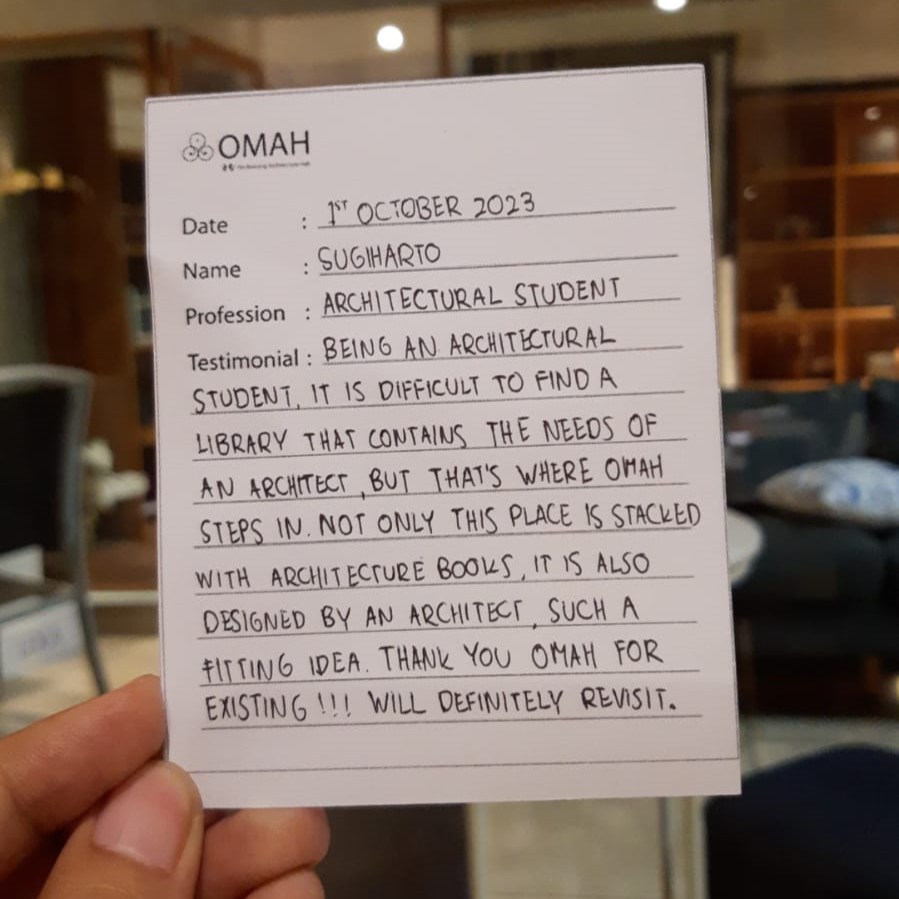 OMAH
Date : 1ST OCTOBER 2023
Name : SUGIHARTO
Profession : ARCHITECTURAL STUDENT
Testimonial : BEING AN ARCHITECTURAL
STUDENT, IT IS DIFFICULT TO FIND A
LIBRARY THAT CONTAINS THE NEEDS OF
AN ARCHITECT, BUT THAT'S WHERE OMAH
STEPS IN. NOT ONLY THIS PLACE IS STACKED
WITH ARCHITECTURE BOOKS, IT IS ALSO
DESIGNED BY AN ARCHITECT, SUCH A
FITTING IDEA. THANK YOU OMAH FOR
EXISTING!!! WILL DEFINITELY REVISIT.